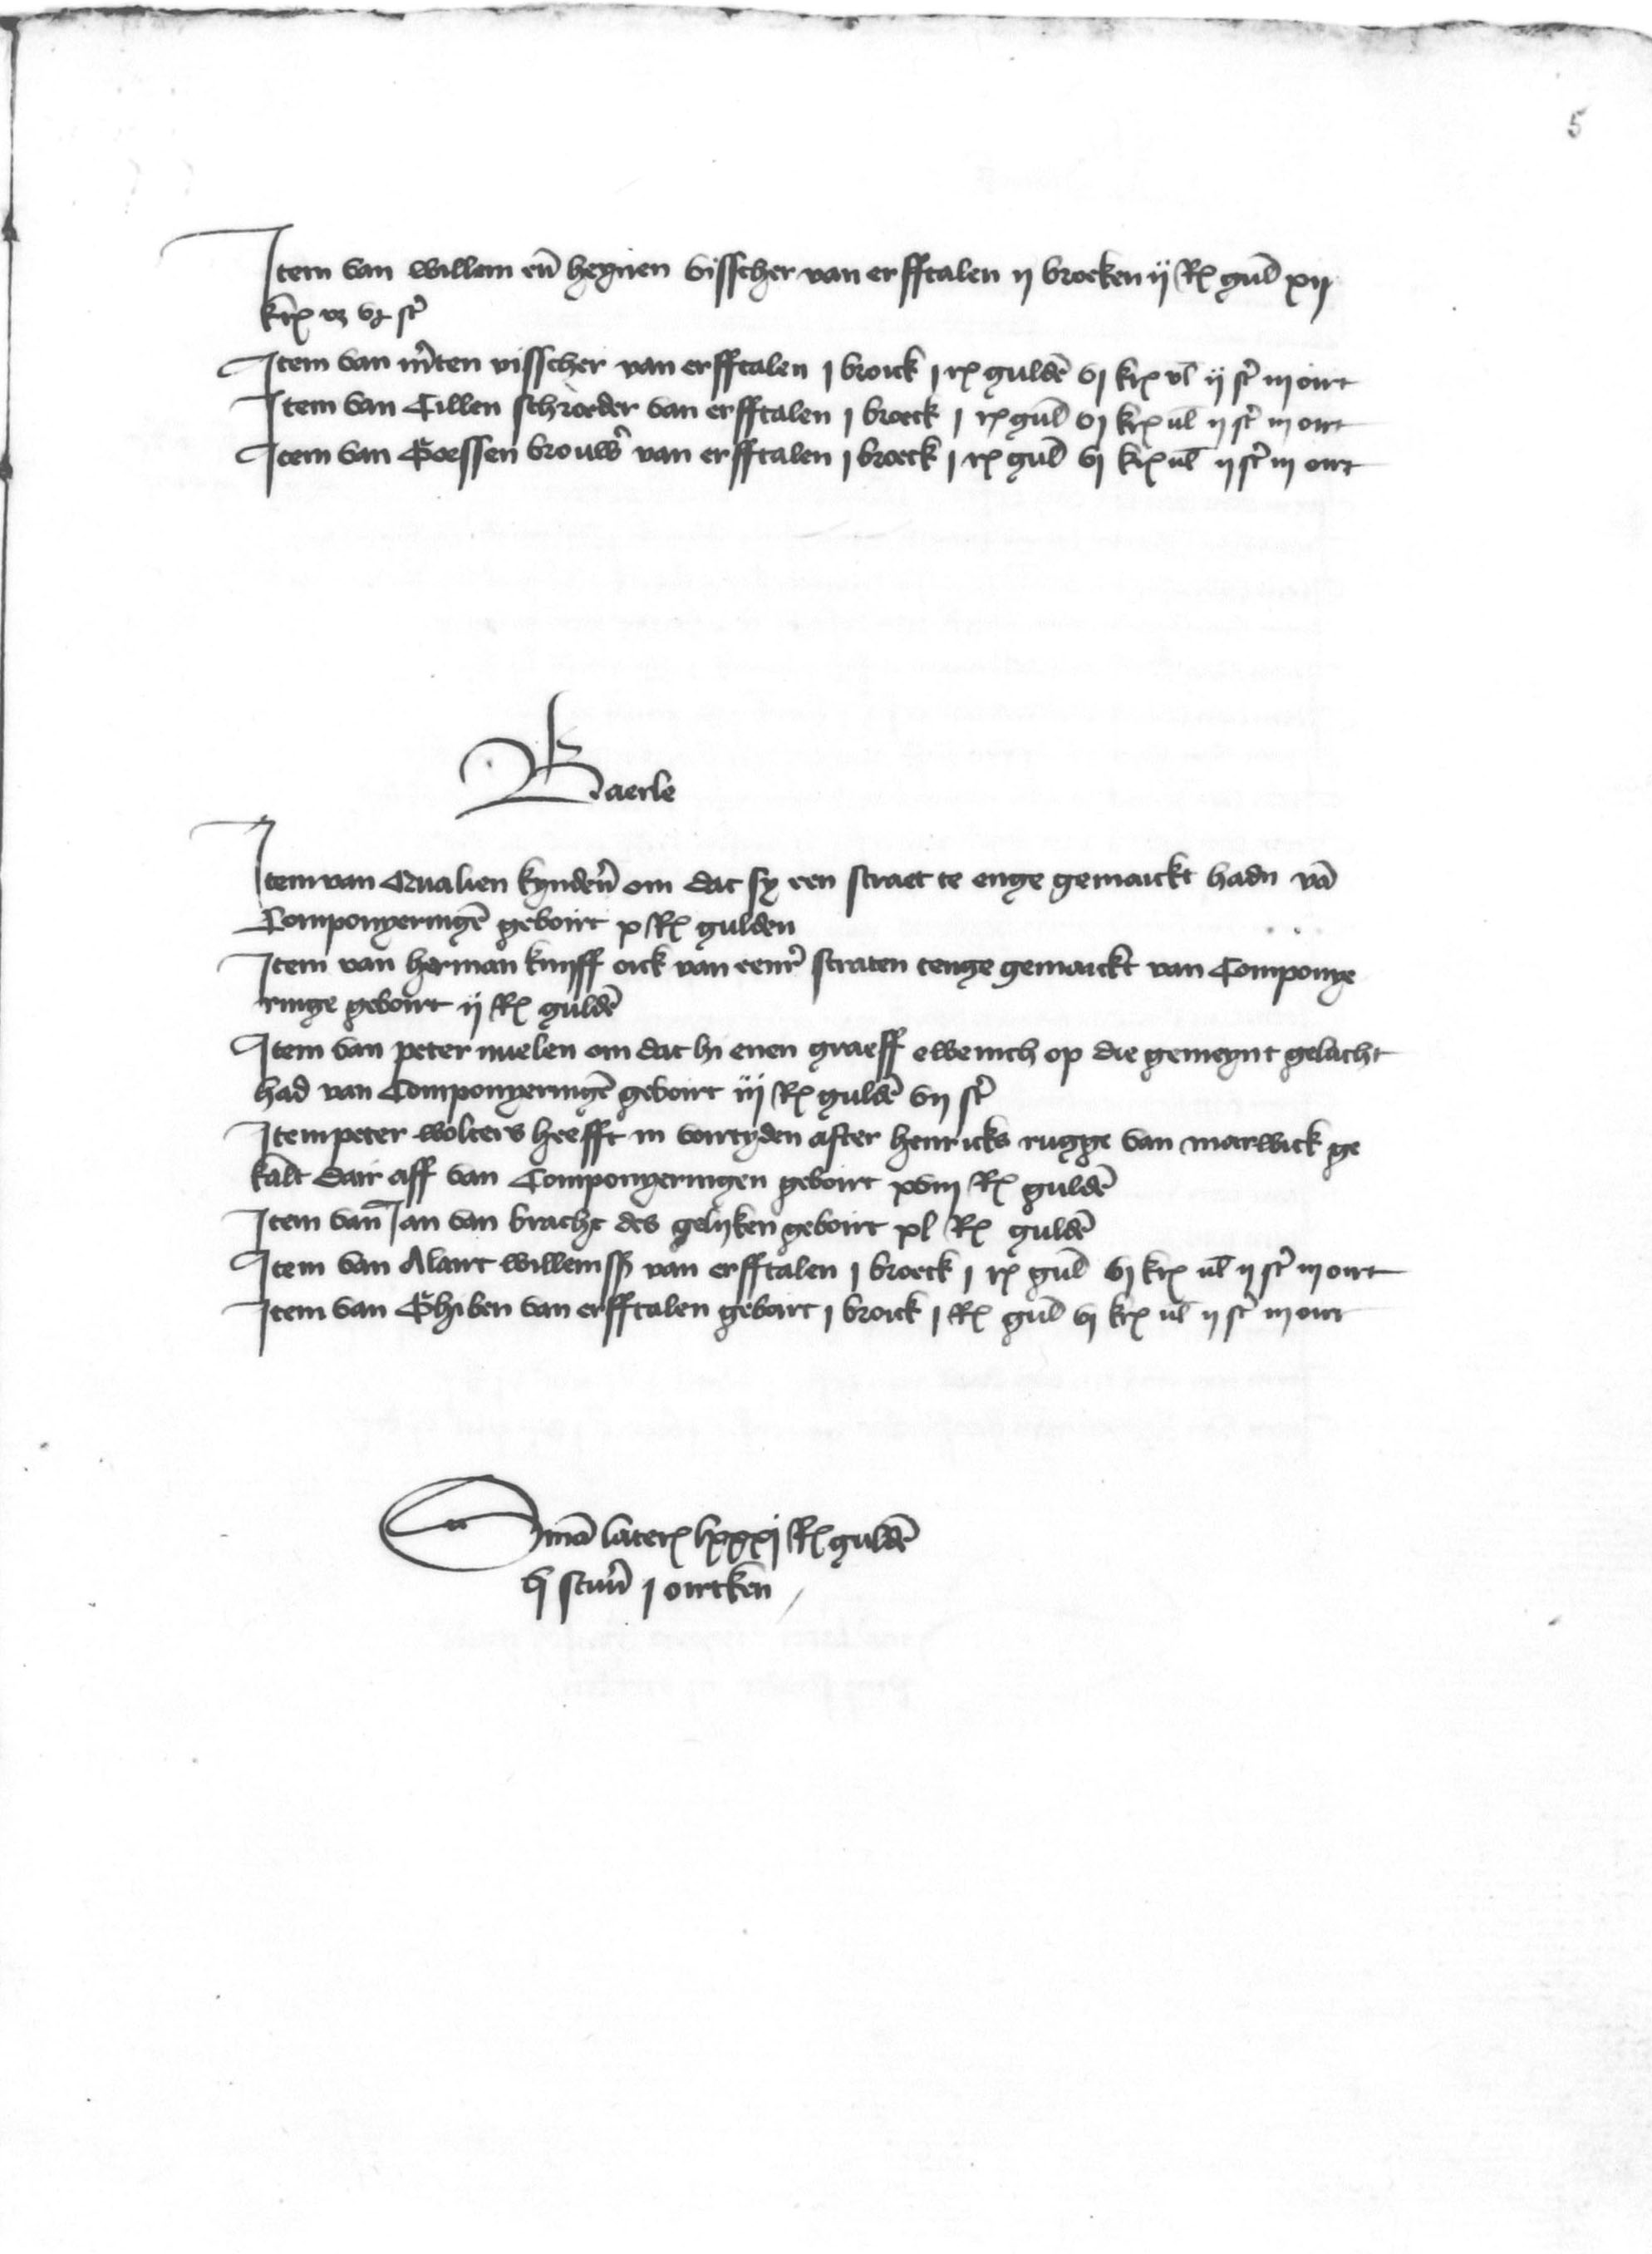 5
Item van willem en̄ heynen visscher van erfftalen ij broeken ij Rx gul̄d xij
krx
Item van m̄ten visscher van erfftalen j broick j rx guldē vj krx vl̄ ij st̄ iij oirt
Item van Tillen schroeder van erfftalen j broeck j rx gul̄d vj krx vl̄ ij st̄ iij oirt
Item van Goessen brouw̄ van erfftalen j broeck j rx gul̄d vj krx vl̄ ij st̄ iij oirt
Baerle
Item van Qualien kynden̄ om dat sy een straet te enge gemaickt hadn vā
Componyeringē geboirt x Rx gulden
Item van herman knyff oick van eenr̄ straten tenge gemaickt van Componye
ringe geboirt ij Rx guldē
Item van peter nuelen om dat hi enen graeff ewenich op die gemeynt gelacht
had van Componyeringē geboirt iij Rx guldē vij st̄
Item peter wolters heefft in voirtyden after henricks rugge van marwick ge
kalt dair aff van Componyeringen geboirt xviij Rx guldē
Item van Jan van bracht des gelijken geboirt xl Rx guldē
Item van Alart willemss van erfftalen j broeck j rx gul̄d vj krx vl̄ ij st̄ iij oirt
Item van Ghiben van erfftalen geboirt j broick j Rx gul̄d vj krx vl̄ ij st̄ iij oirt
Sum̄a laterx lxxxj Rx guldē
vj stuū j oirtken